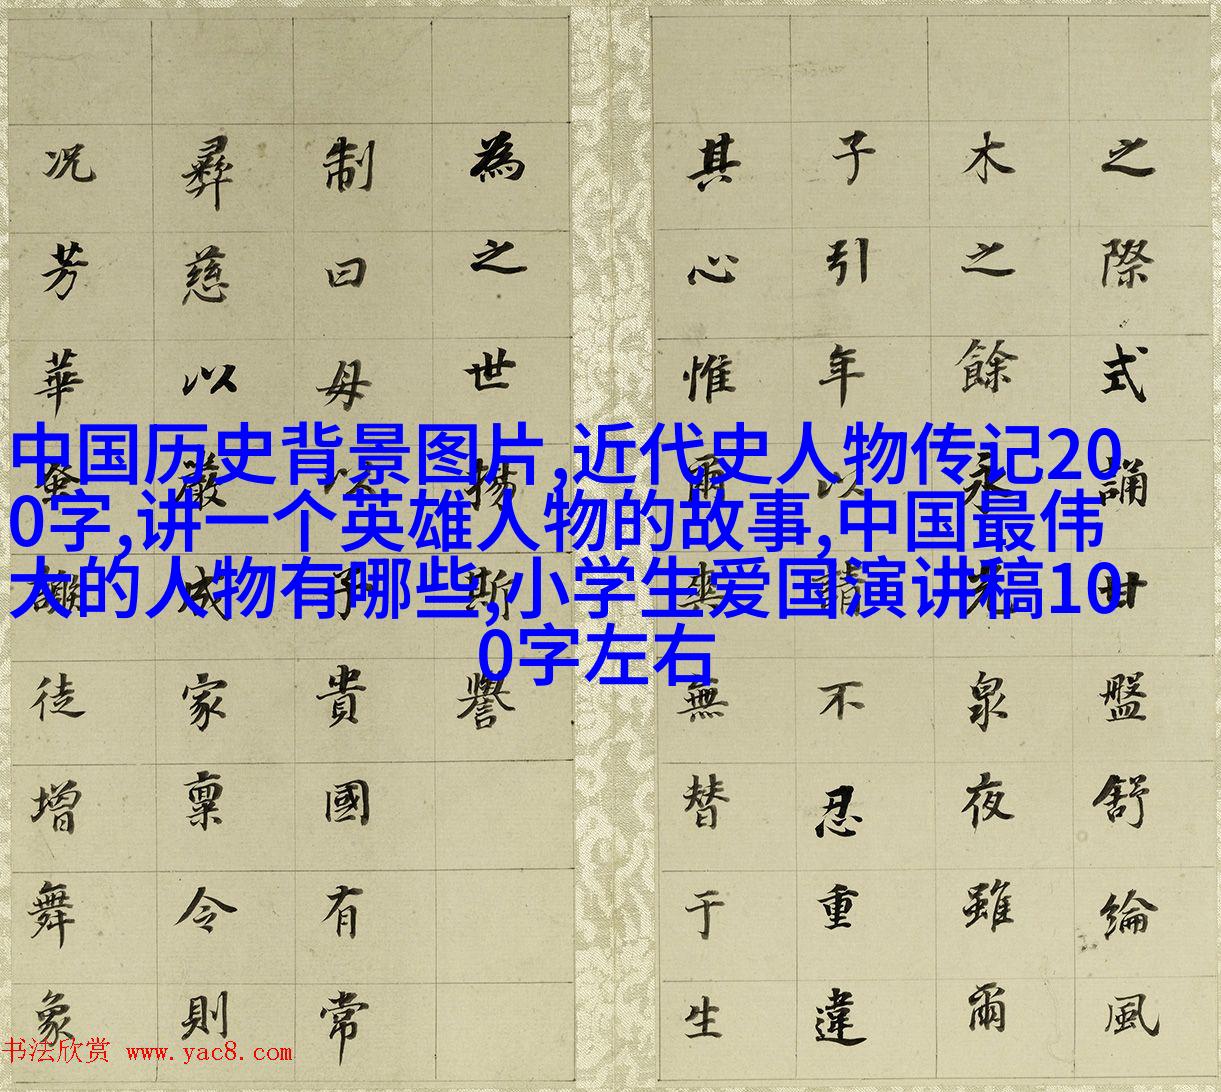 之際式誦甘盤舒綸風
木之餘永光泉夜雖爾
子引年以請不忍重違
其心惟爾奕無替于生
為之世揚斯譽
制曰母以子貴國有常
彝慈以嚴成家稟令則
況芳華徒增舞象
中国历史背景图片,近代史人物传记20
0字,讲一个英雄人物的故事,中国最伟
大的人物有哪些,小学生爱国演讲稿10
0字左右
书法欣赏 www.yac8.com